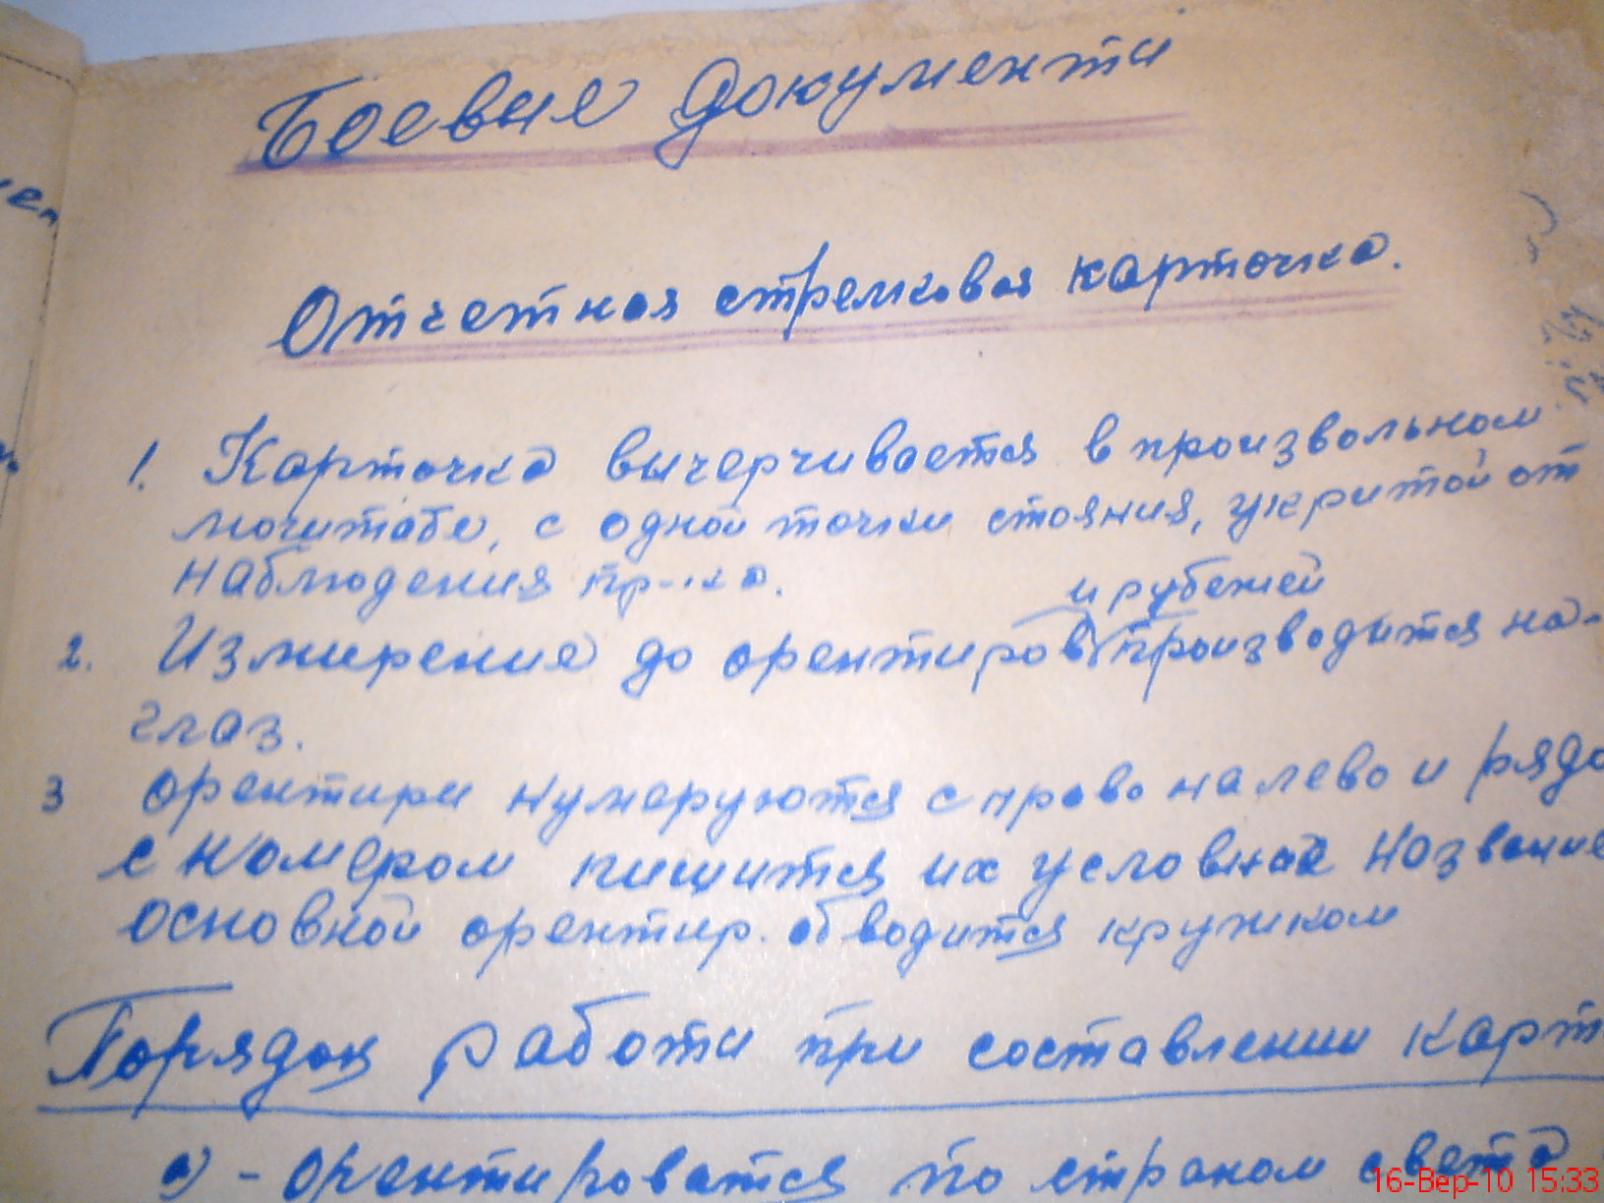 Боевые документи
Отчетная стрелковая карточка.
1. Карточка вычерчивается в произвольном
масштабе, с одной точки стояния, укритой от
наблюдения пр-ка.
и рубежей
2. Измирение до орентиров производится на-
глаз.
3 орентири нумеруются с право на лево и рядо
с номером пишится их условное название
основной орентир. обводится кружком
Порядок работи при составлении карт
а) - Орентироватся по странам света
16-Вер-10 15:33